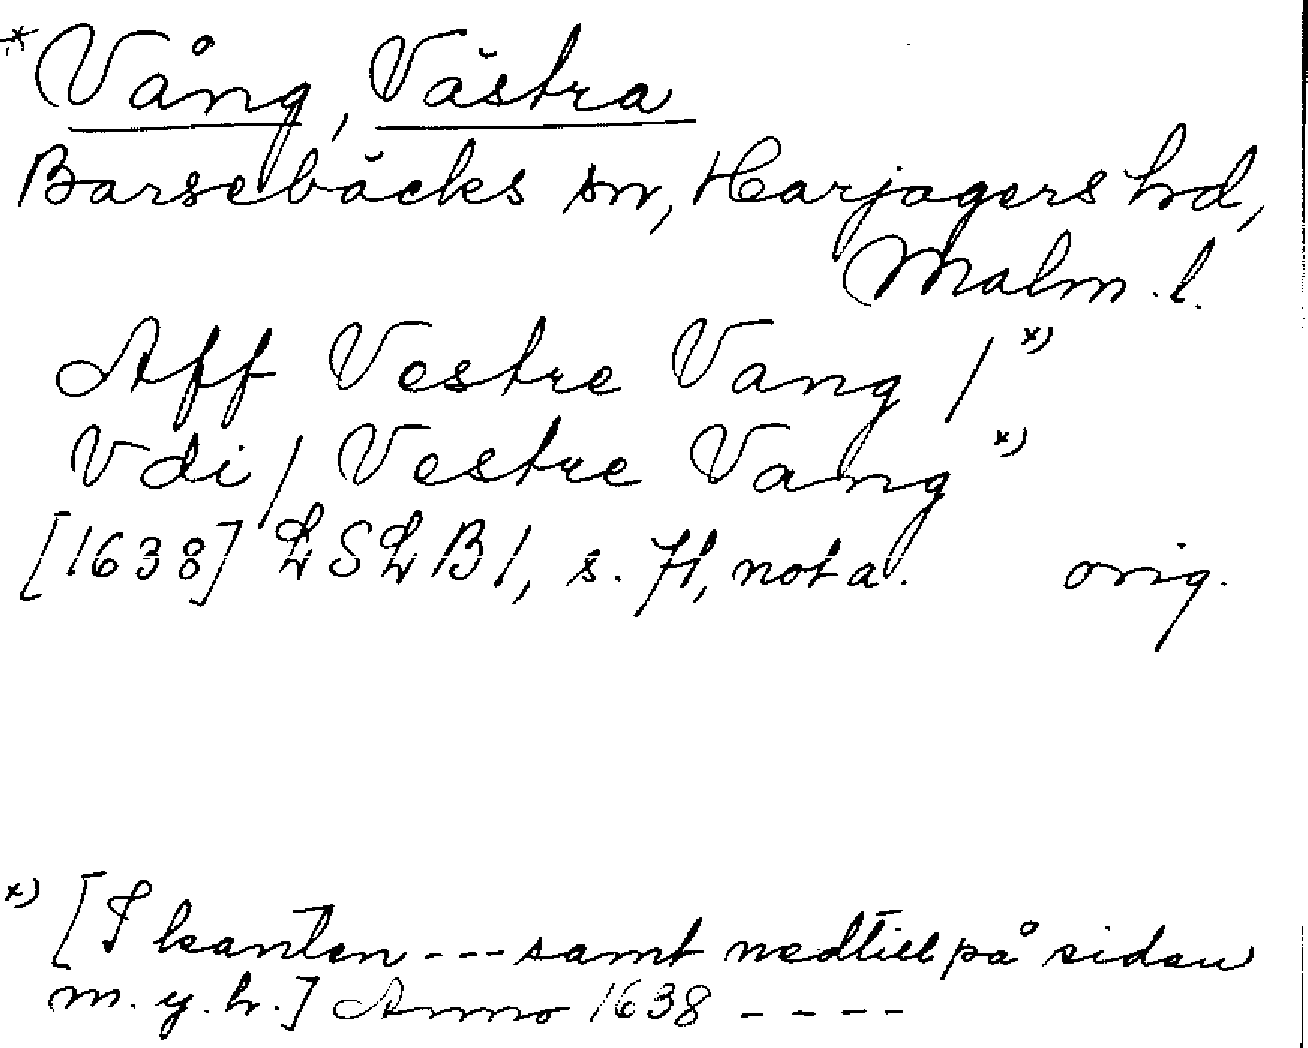 * Vång, Västra
Barsebäcks sn, Harjagers hrd,
Malm. l.
Aff Vestre Vang / x)
Vdi / Vestre Vang x)
[1638] LSLB 1, s. 71, nota. orig.
x) [I kanten --- samt nedtill på sidan
m. y. h.] Anno 1638 ----